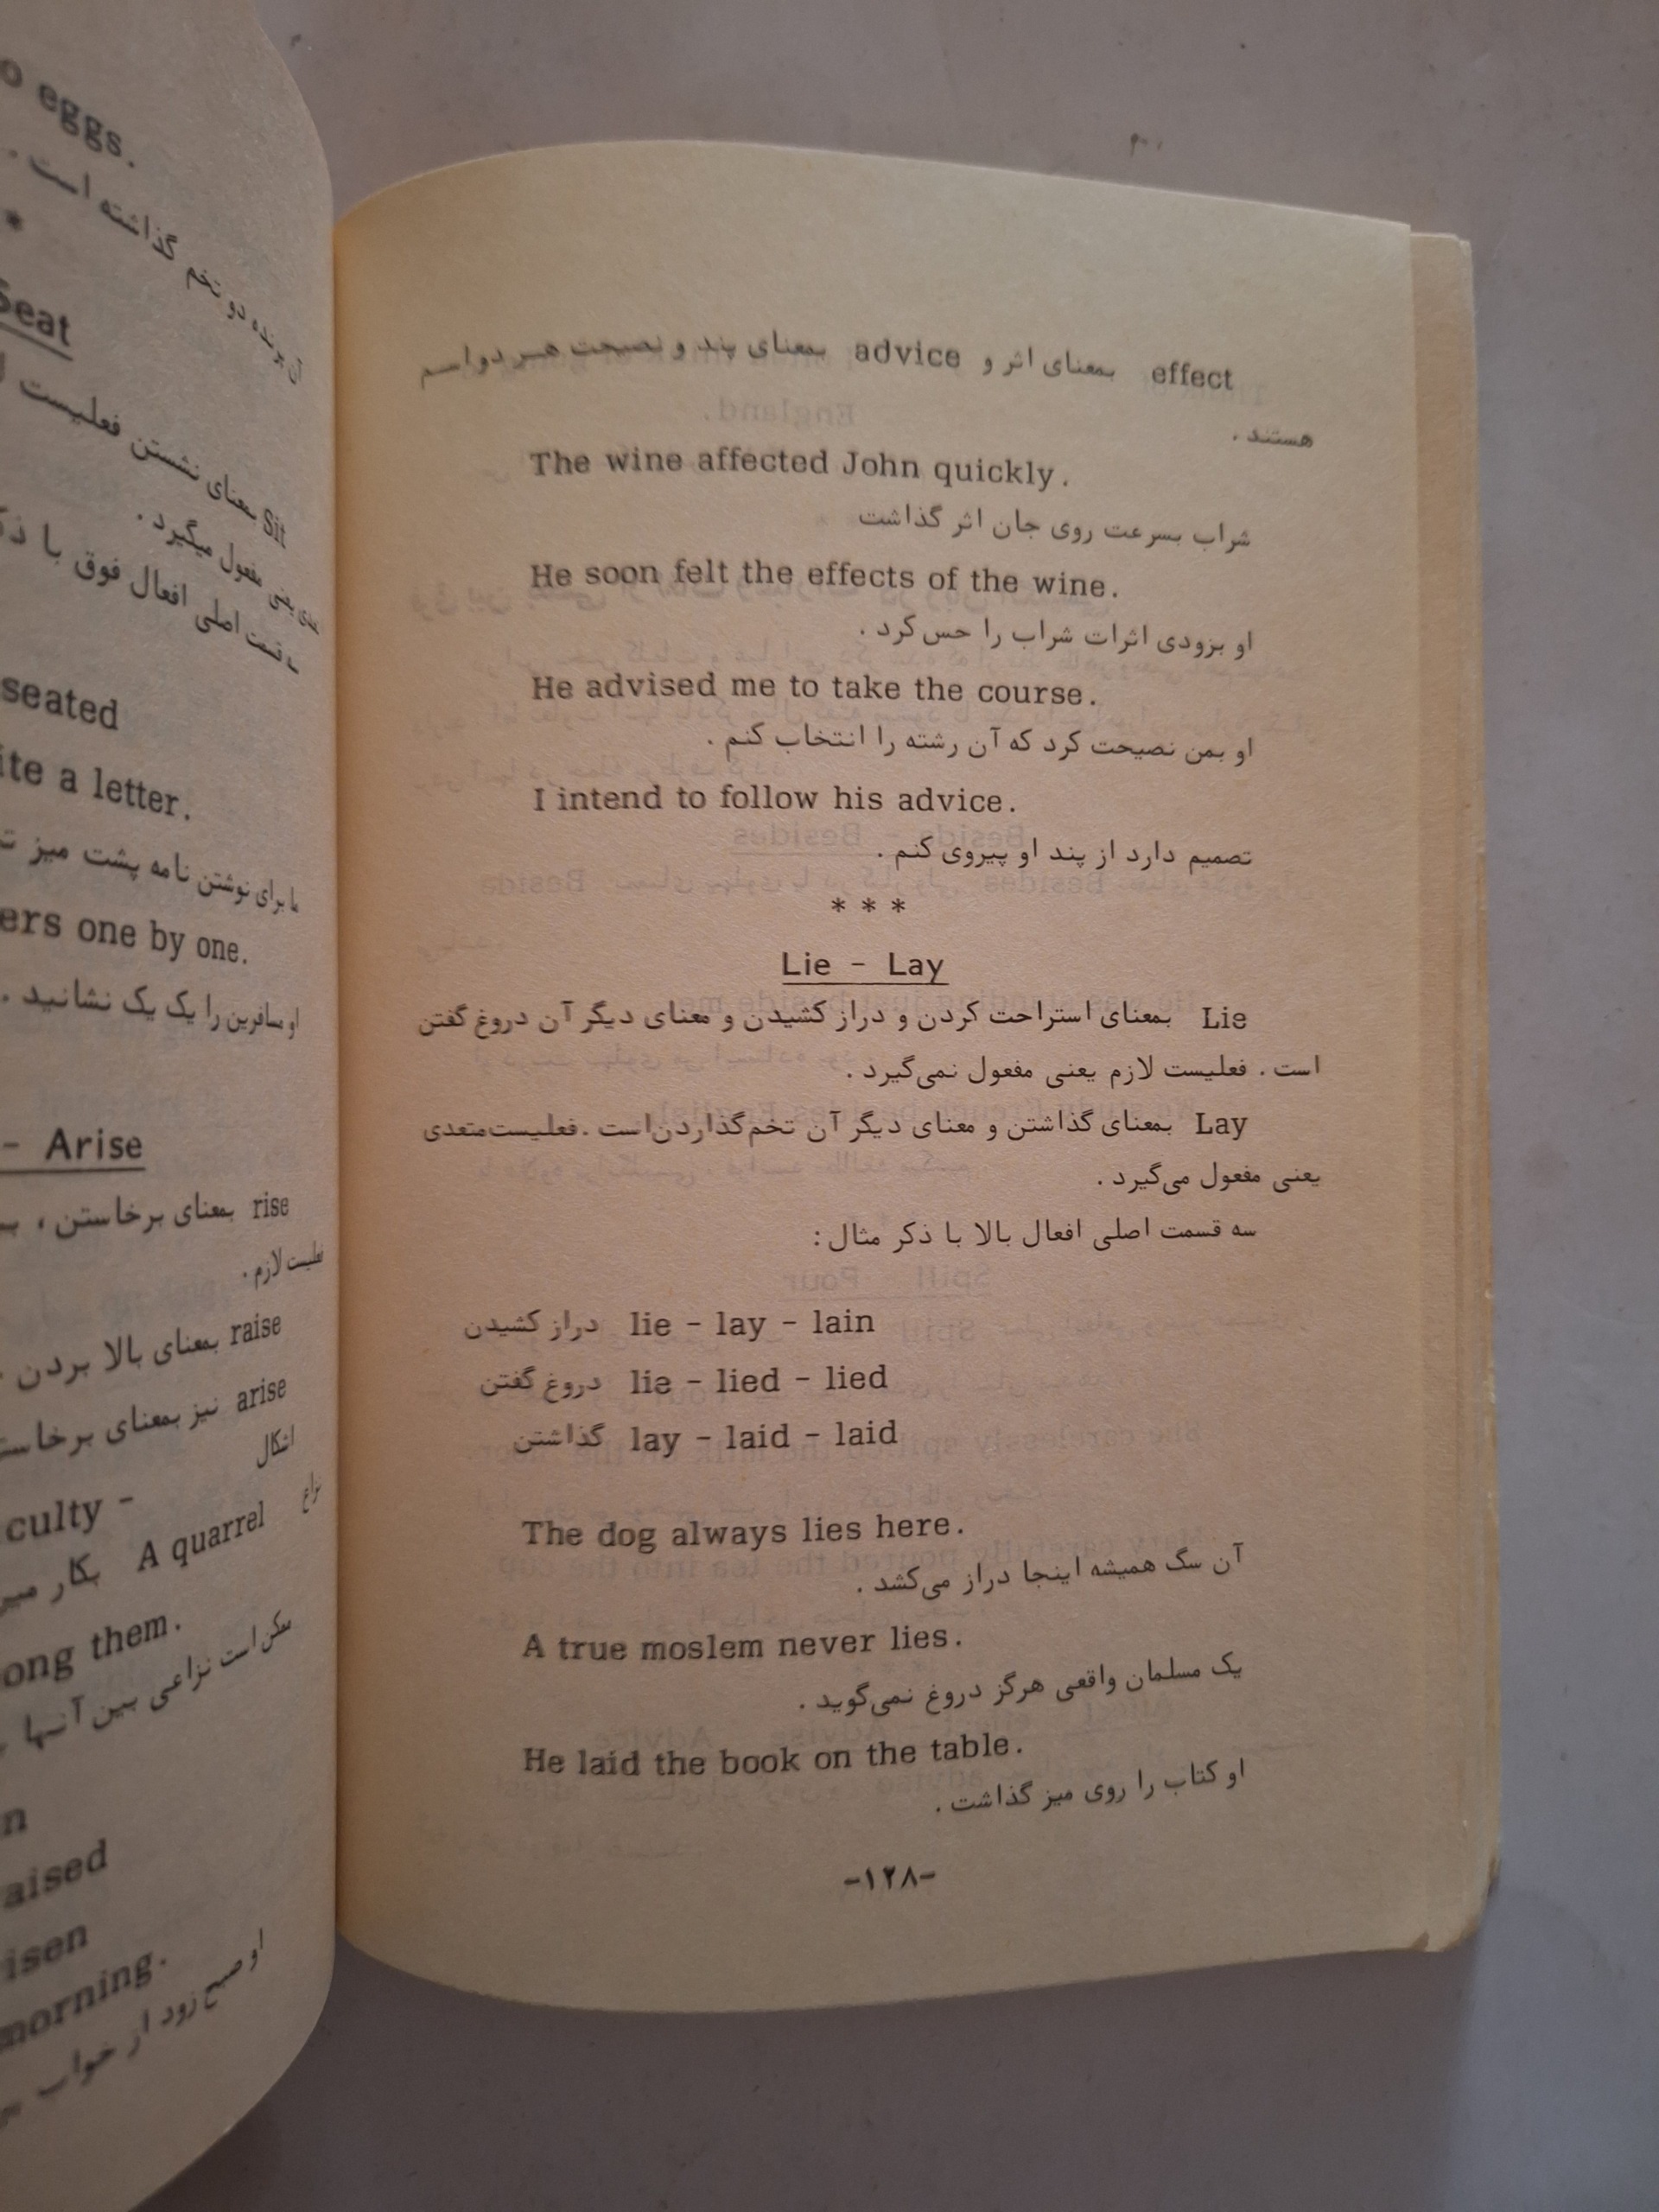 effect بمعنای اثر و advice بمعنای پند و نصیحت هر دو اسم
هستند .
The wine affected John quickly.
شراب بسرعت روی جان اثر گذاشت
He soon felt the effects of the wine.
او بزودی اثرات شراب را حس کرد .
He advised me to take the course.
او بمن نصیحت کرد که آن رشته را انتخاب کنم .
I intend to follow his advice.
تصمیم دارد از پند او پیروی کنم .
* * *
Lie - Lay
Lie بمعنای استراحت کردن و دراز کشیدن و معنای دیگر آن دروغ گفتن
است . فعلیست لازم یعنی مفعول نمی‌گیرد .
Lay بمعنای گذاشتن و معنای دیگر آن تخم‌گذاردن است . فعلیست متعدی
یعنی مفعول می‌گیرد .
سه قسمت اصلی افعال بالا با ذکر مثال :
lie - lay - lain دراز کشیدن
lie - lied - lied دروغ گفتن
lay - laid - laid گذاشتن
The dog always lies here.
آن سگ همیشه اینجا دراز می‌کشد .
A true moslem never lies.
یک مسلمان واقعی هرگز دروغ نمی‌گوید .
He laid the book on the table.
او کتاب را روی میز گذاشت .
-۱۲۸-
eggs.
آن پرنده دو تخم گذاشته است .
*
Seat
Sit بمعنای نشستن فعلیست
یعنی مفعول میگیرد .
سه قسمت اصلی افعال فوق با
seated
a letter.
ما برای نوشتن نامه پشت میز
one by one.
او مسافرین را یک یک نشانید .
- Arise
rise بمعنای برخاستن ،
فعلیست لازم .
raise بمعنای بالا بردن
arise نیز بمعنای
اشکال
نزاع
A quarrel بکار
them.
ممکن است نزاعی بین آنها
morning.
او صبح زود از خواب